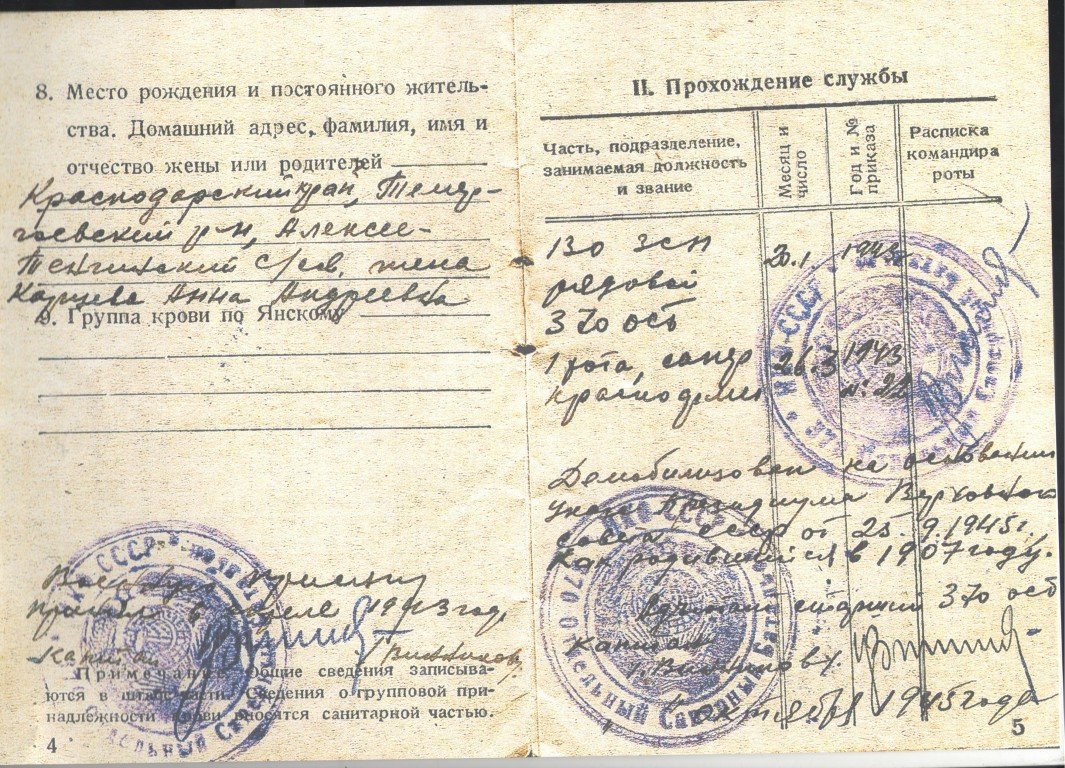 8. Место рождения и постоянного житель-
ства. Домашний адрес, фамилия, имя и
отчество жены или родителей
Краснодарский край, Темир-
гоевский р-н, Алексее-
Тенгинский с/сов, жена
Карцева Анна Андреевна
9. Группа крови по Янскому
Военную присягу
принял в апреле 1943 год
Капитан
Примечание. Общие сведения записыва-
ются в штабе части. Сведения о групповой при-
надлежности крови вносятся санитарной частью.
4
II. Прохождение службы
Часть, подразделение,
занимаемая должность
и звание
Месяц и
число
Год и №
приказа
Расписка
командира
роты
130 зсп 20.1 1943
рядовой
370 осб
1 рота, сапер 26.3 1943
красноармеец № 22
Демобилизован на основании
Указа Президиума Верховного
Совета СССР от 25.9.1945г.
как родившийся в 1907 году.
370 осб
Капитан
октября 1945 года
5
НКО-СССР
Отдельный Саперный Батальон
НКО СССР
370 Отдельный Саперный Батальон
СССР
Отдельный Саперный